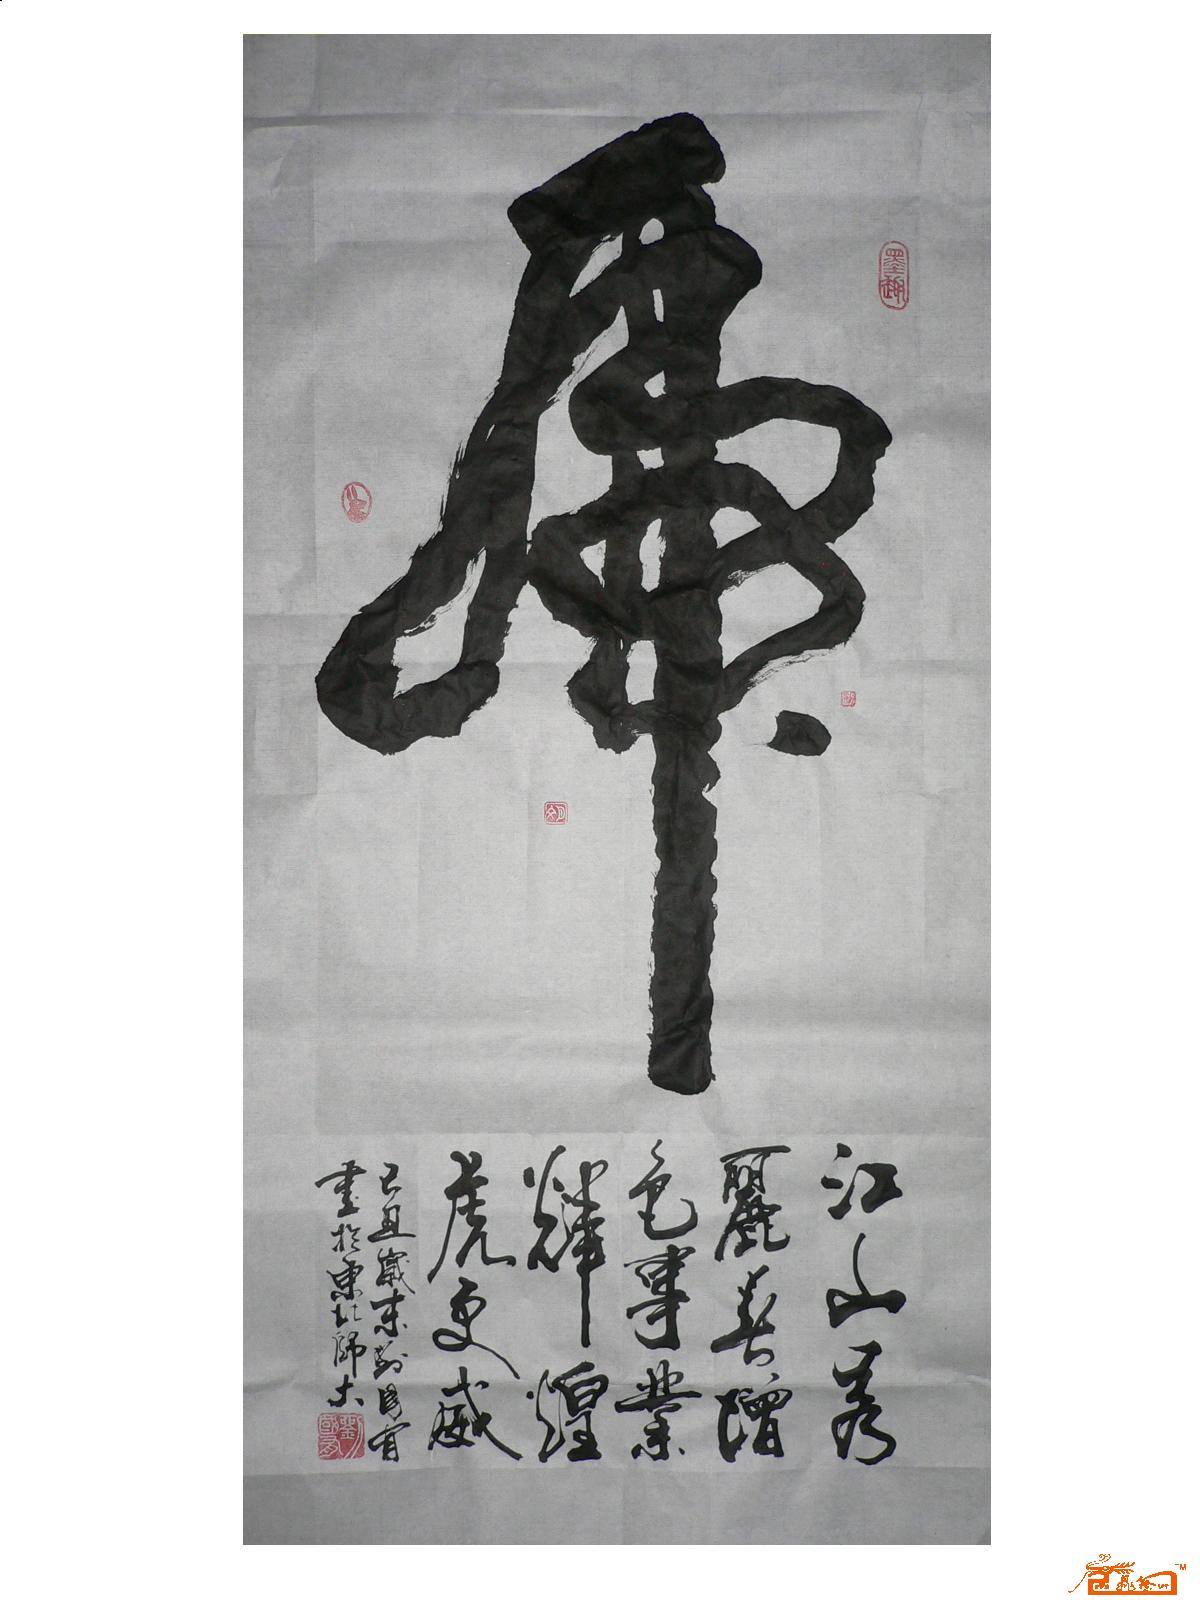 虎
江山秀
麗春增
色事業
輝煌
虎更威
己丑歲末劉國富
書於東北師大
墨趣